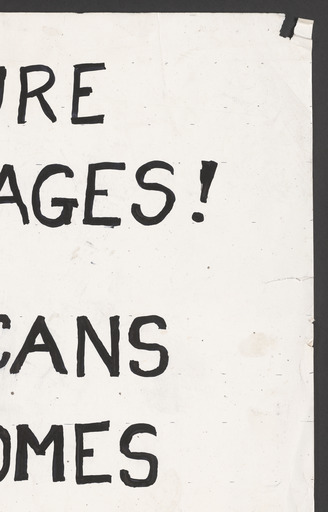 URE
AGES!
CANS
OMES